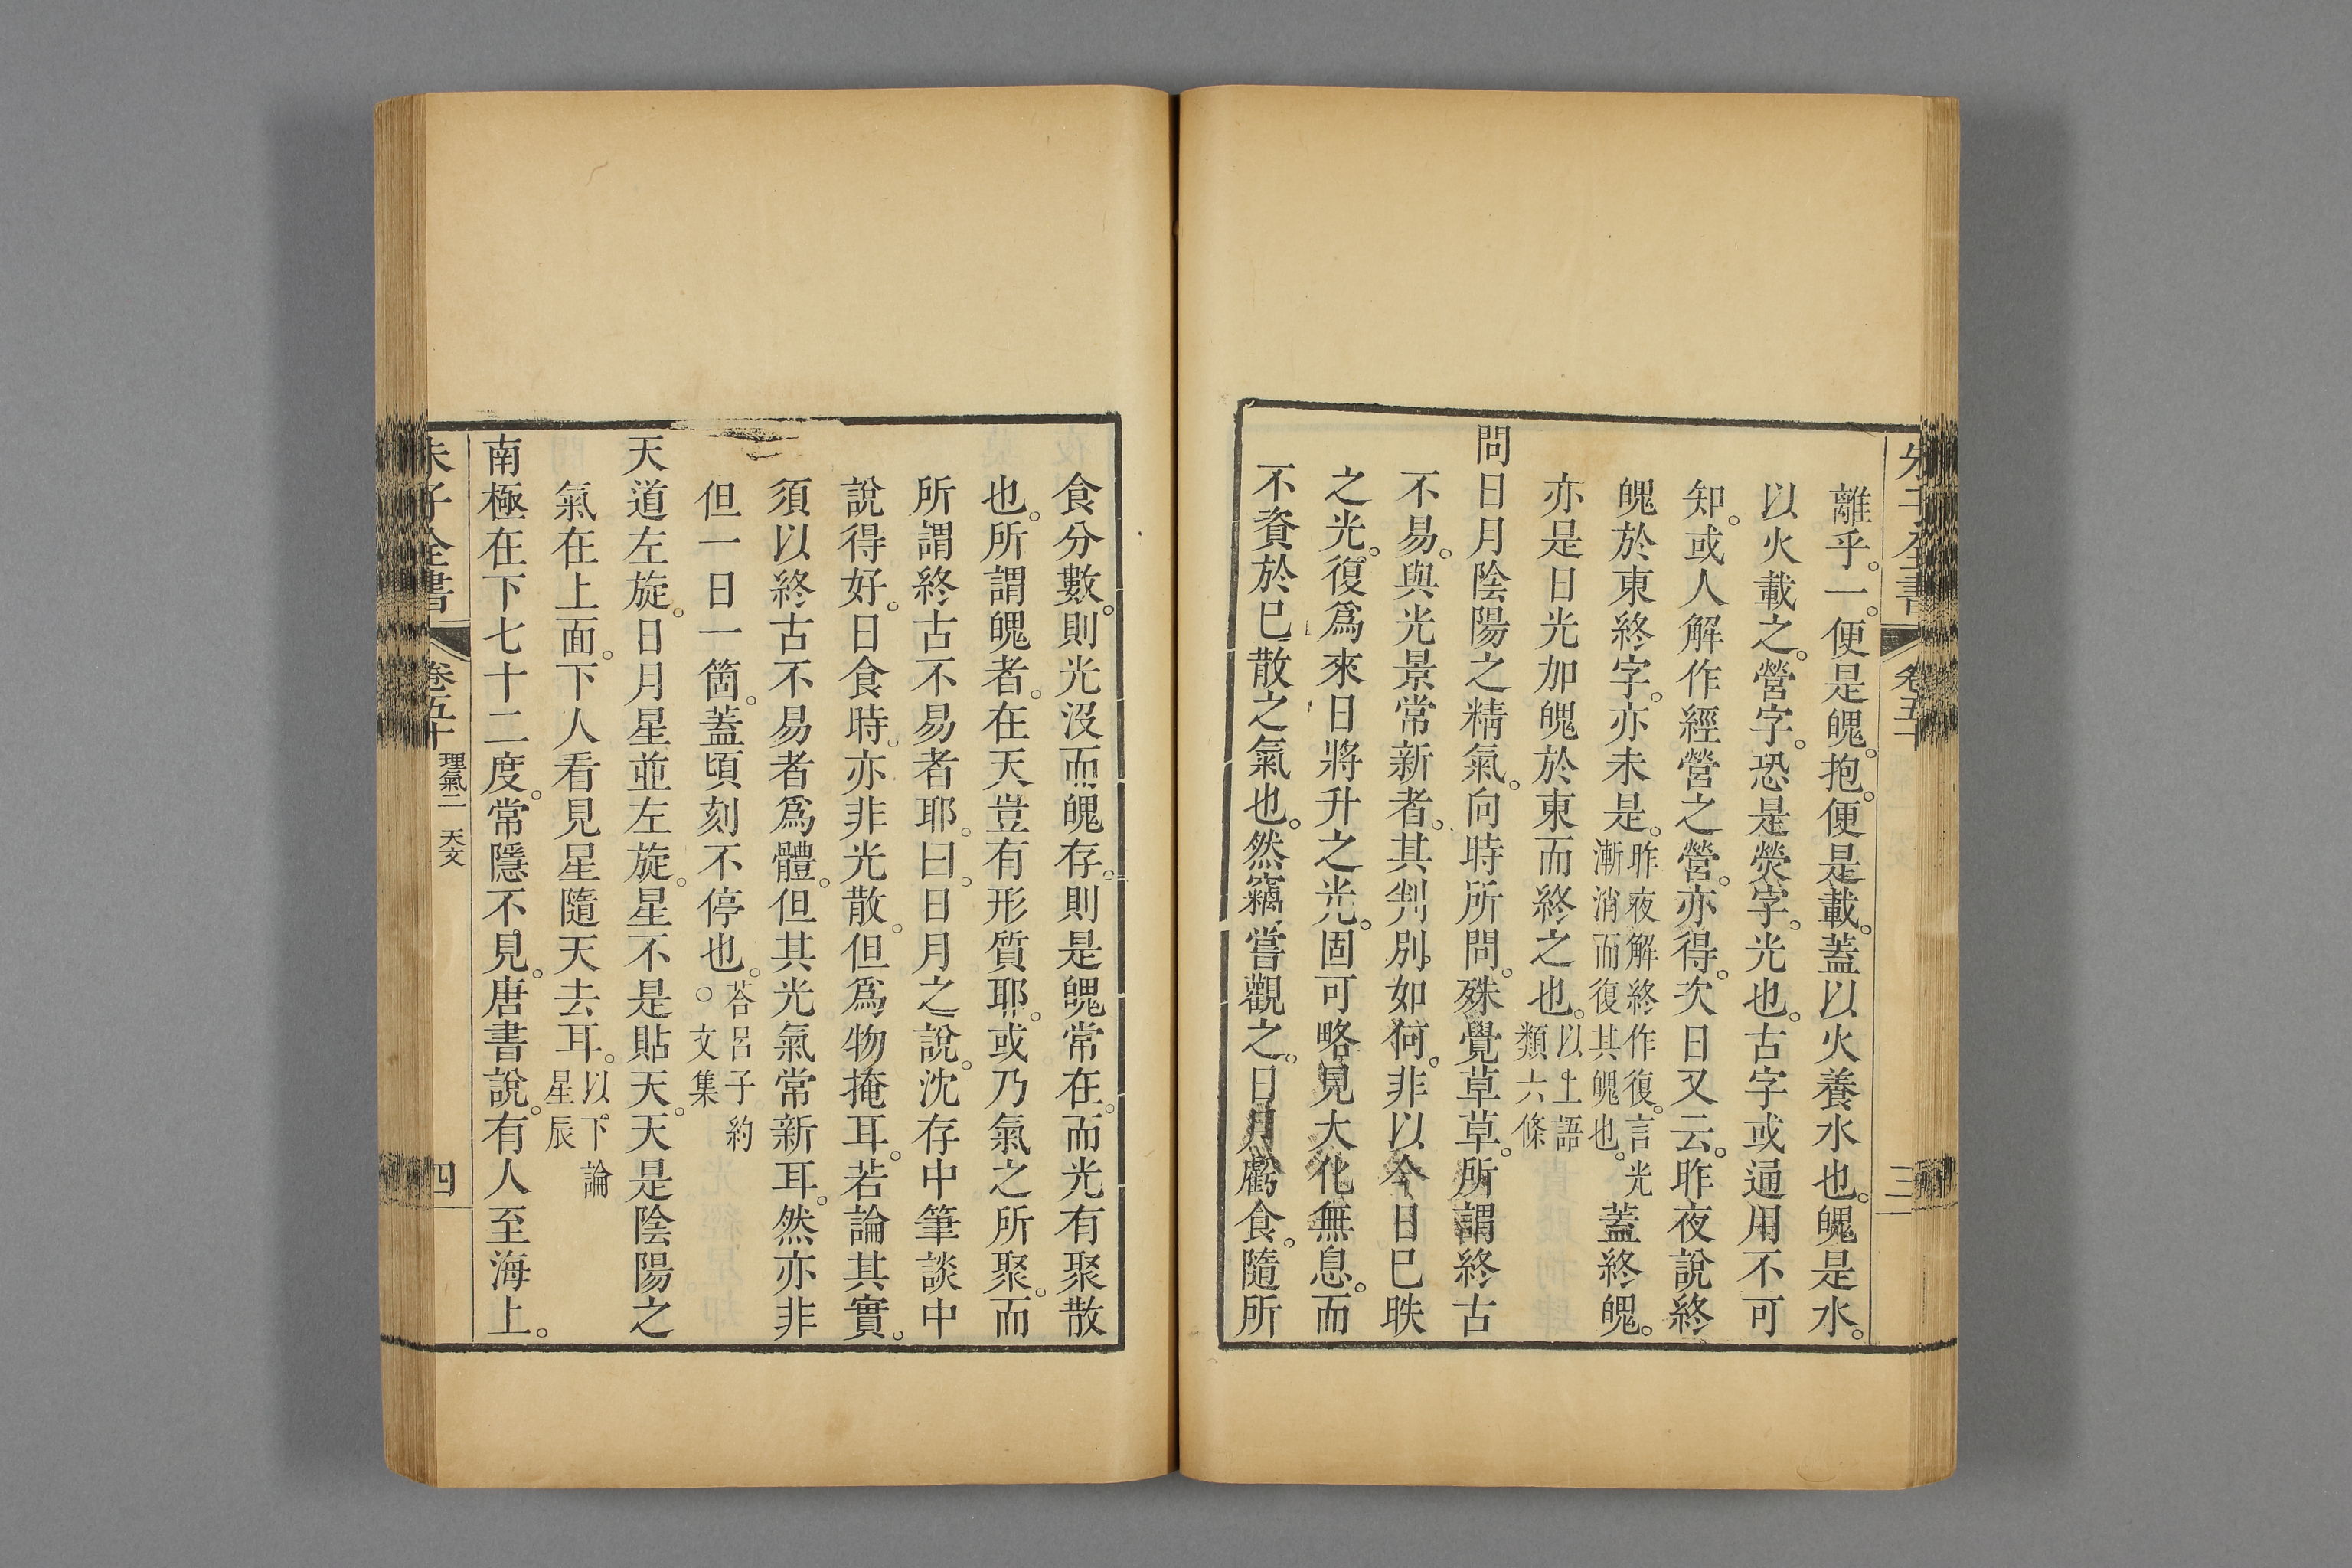 離乎。一。便是魄。抱。便是載。蓋以火養水也。魄是水。
以火載之。營字。恐是熒字。光也。古字或通用不可
知。或人解作經營之營。亦得。次日又云。昨夜說終
魄於東終字。亦未是。昨夜解終作復。言光漸消而復其魄也。蓋終魄。
亦是日光加魄於東而終之也。以上語類六條
問日月陰陽之精氣。向時所問。殊覺草草。所謂終古
不易。與光景常新者。其判別如何。非以今日已昳
之光。復爲來日將升之光。固可略見大化無息。而
不資於已散之氣也。然竊嘗觀之。日月虧食。隨所
朱子全書 卷五十 三
食分數。則光沒而魄存。則是魄常在。而光有聚散
也。所謂魄者。在天豈有形質耶。或乃氣之所聚。而
所謂終古不易者耶。曰。日月之說。沈存中筆談中
說得好。日食時。亦非光散。但爲物掩耳。若論其實。
須以終古不易者爲體。但其光氣常新耳。然亦非
但一日一箇。蓋頃刻不停也。○荅呂子約文集
天道左旋。日月星並左旋。星不是貼天。天是陰陽之
氣在上面。下人看見星隨天去耳。以下論星辰
南極在下七十二度。常隱不見。唐書說。有人至海上。
朱子全書 卷五十 理氣二 天文 四